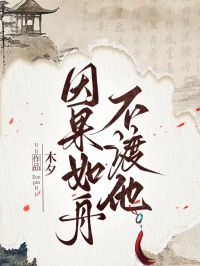 因果如舟
不渡他
木夕
作品